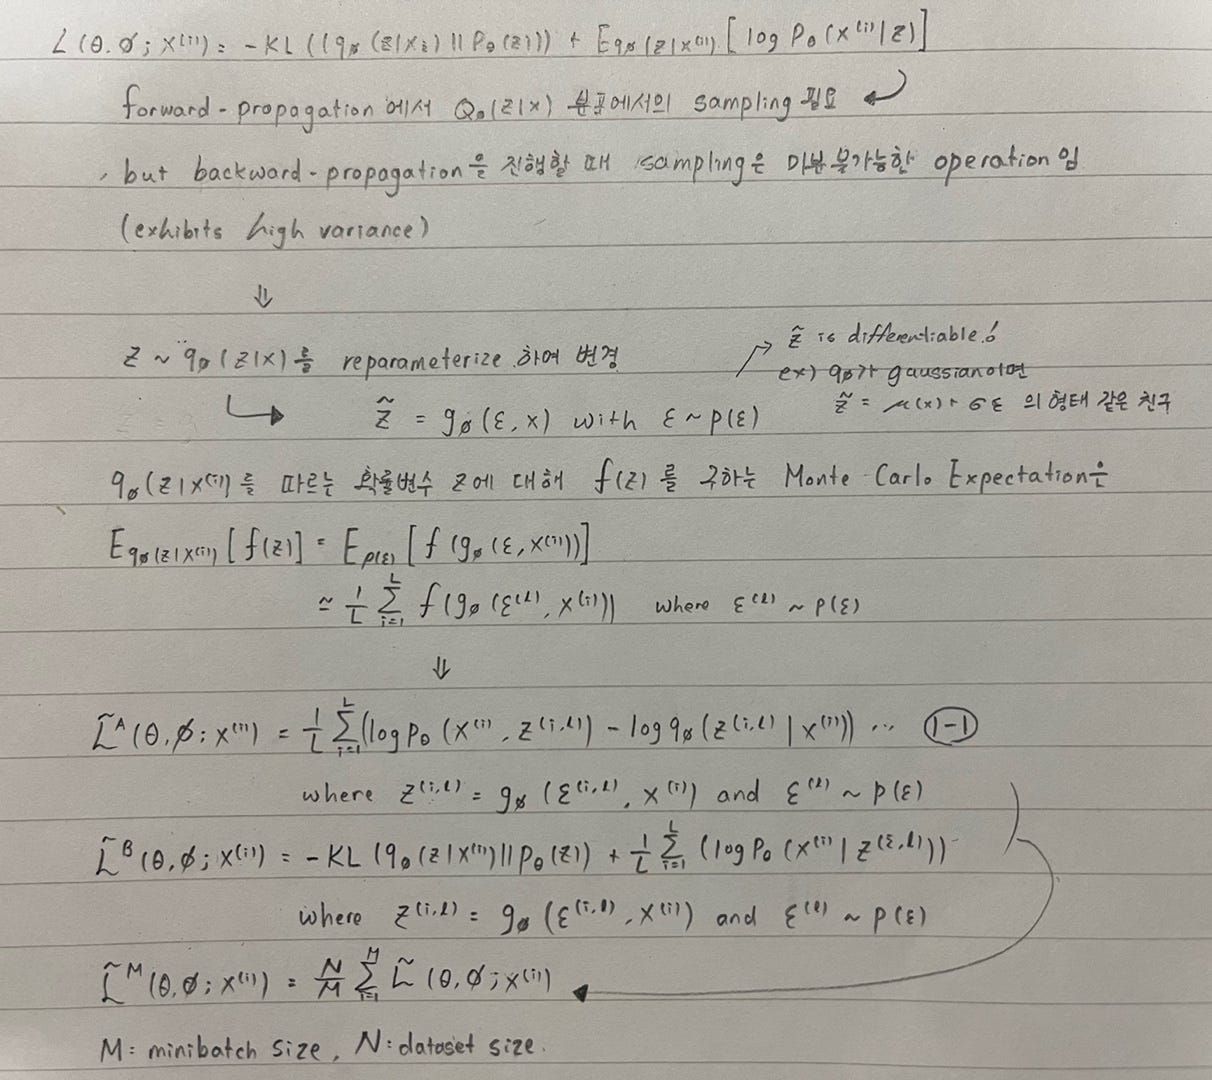 L(θ.ø; x⁽ⁱ⁾) = -KL((qø(z|xᵢ)||Pθ(z))) + E_qø(z|x⁽ⁱ⁾)[log Pθ(x⁽ⁱ⁾|z)]
forward-propagation 에서 Qø(z|x) 분포에서의 sampling 필요
, but backward-propagation을 진행할 때 sampling은 미분불가능한 operation임
(exhibits high variance)
⇓
z ~ qø(z|x)를 reparameterize 하여 변경
→ z̃ = gø(ε,x) with ε~p(ε)
↗ z̃ is differentiable!
ex) qø가 gaussian이면
z̃ = μ(x)+σε 의 형태 같은 친구
qø(z|x⁽ⁱ⁾)를 따르는 확률변수 z에 대해 f(z)를 구하는 Monte-Carlo Expectation은
E_qø(z|x⁽ⁱ⁾)[f(z)] = E_p(ε)[f(gø(ε,x⁽ⁱ⁾))]
≃ 1/L Σ_{i=1}^{L} f(gø(ε⁽ˡ⁾, x⁽ⁱ⁾)) where ε⁽ˡ⁾ ~ p(ε)
⇓
L̃ᴬ(θ.ø; x⁽ⁱ⁾) = 1/L Σ_{i=1}^{L}(log pθ(x⁽ⁱ⁾, z⁽ⁱ,ˡ⁾) - log qø(z⁽ⁱ,ˡ⁾|x⁽ⁱ⁾)) ... (1-1)
where z⁽ⁱ,ˡ⁾ = gø(ε⁽ⁱ,ˡ⁾, x⁽ⁱ⁾) and ε⁽ˡ⁾ ~ p(ε)
L̃ᴮ(θ.ø; x⁽ⁱ⁾) = -KL(qø(z|x⁽ⁱ⁾)||pθ(z)) + 1/L Σ_{i=1}^{L}(log Pθ(x⁽ⁱ⁾|z^(ε,l)))
where z⁽ⁱ,ˡ⁾ = gø(ε⁽ⁱ,ˡ⁾, x⁽ⁱ⁾) and ε⁽ˡ⁾ ~ p(ε)
L̃ᴹ(θ.ø; x⁽ⁱ⁾) = N/M Σ_{i=1}^{M} L̃(θ.ø; x⁽ⁱ⁾)
M: minibatch size, N: dataset size.